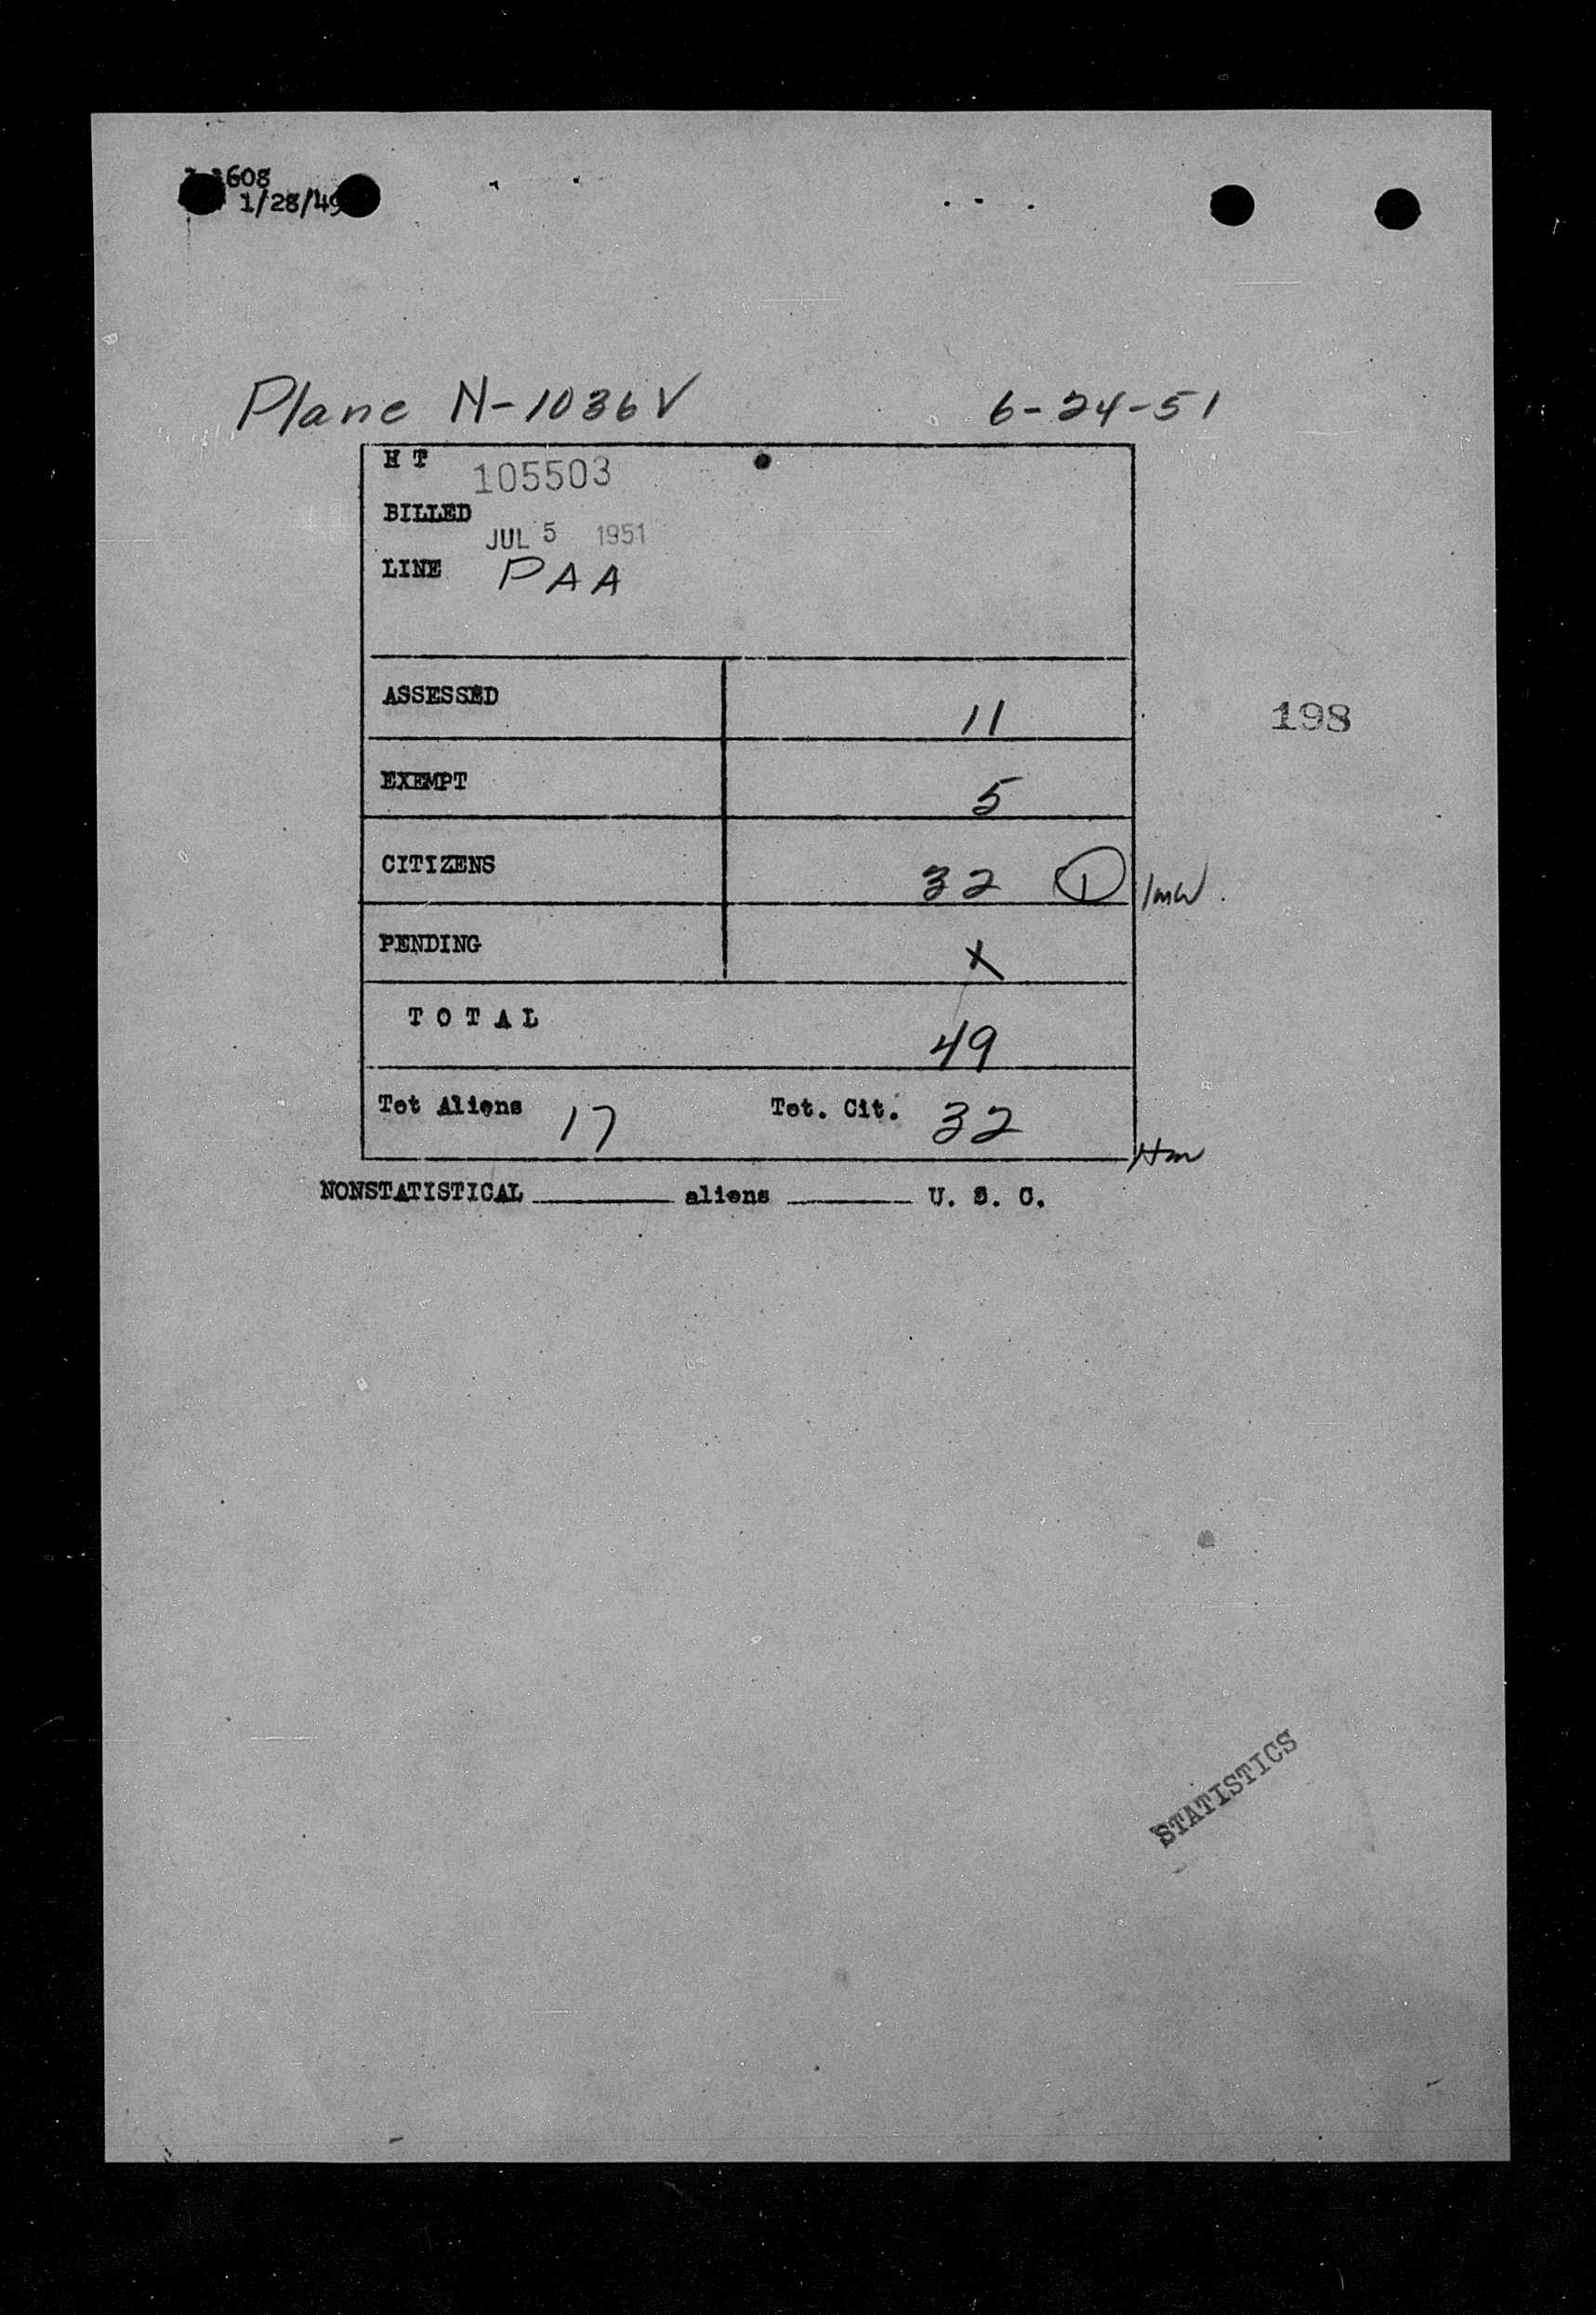 1608
1/28/49
Plane N-1036V 6-24-51
H T 105503
BILLED
JUL 5 1951
LINE PAA
ASSESSED 11
198
EXEMPT 5
CITIZENS 32 1
PENDING X
TOTAL
49
Tot Aliens 17 Tot. Cit. 32
NONSTATISTICAL aliens U. S. C.
STATISTICS